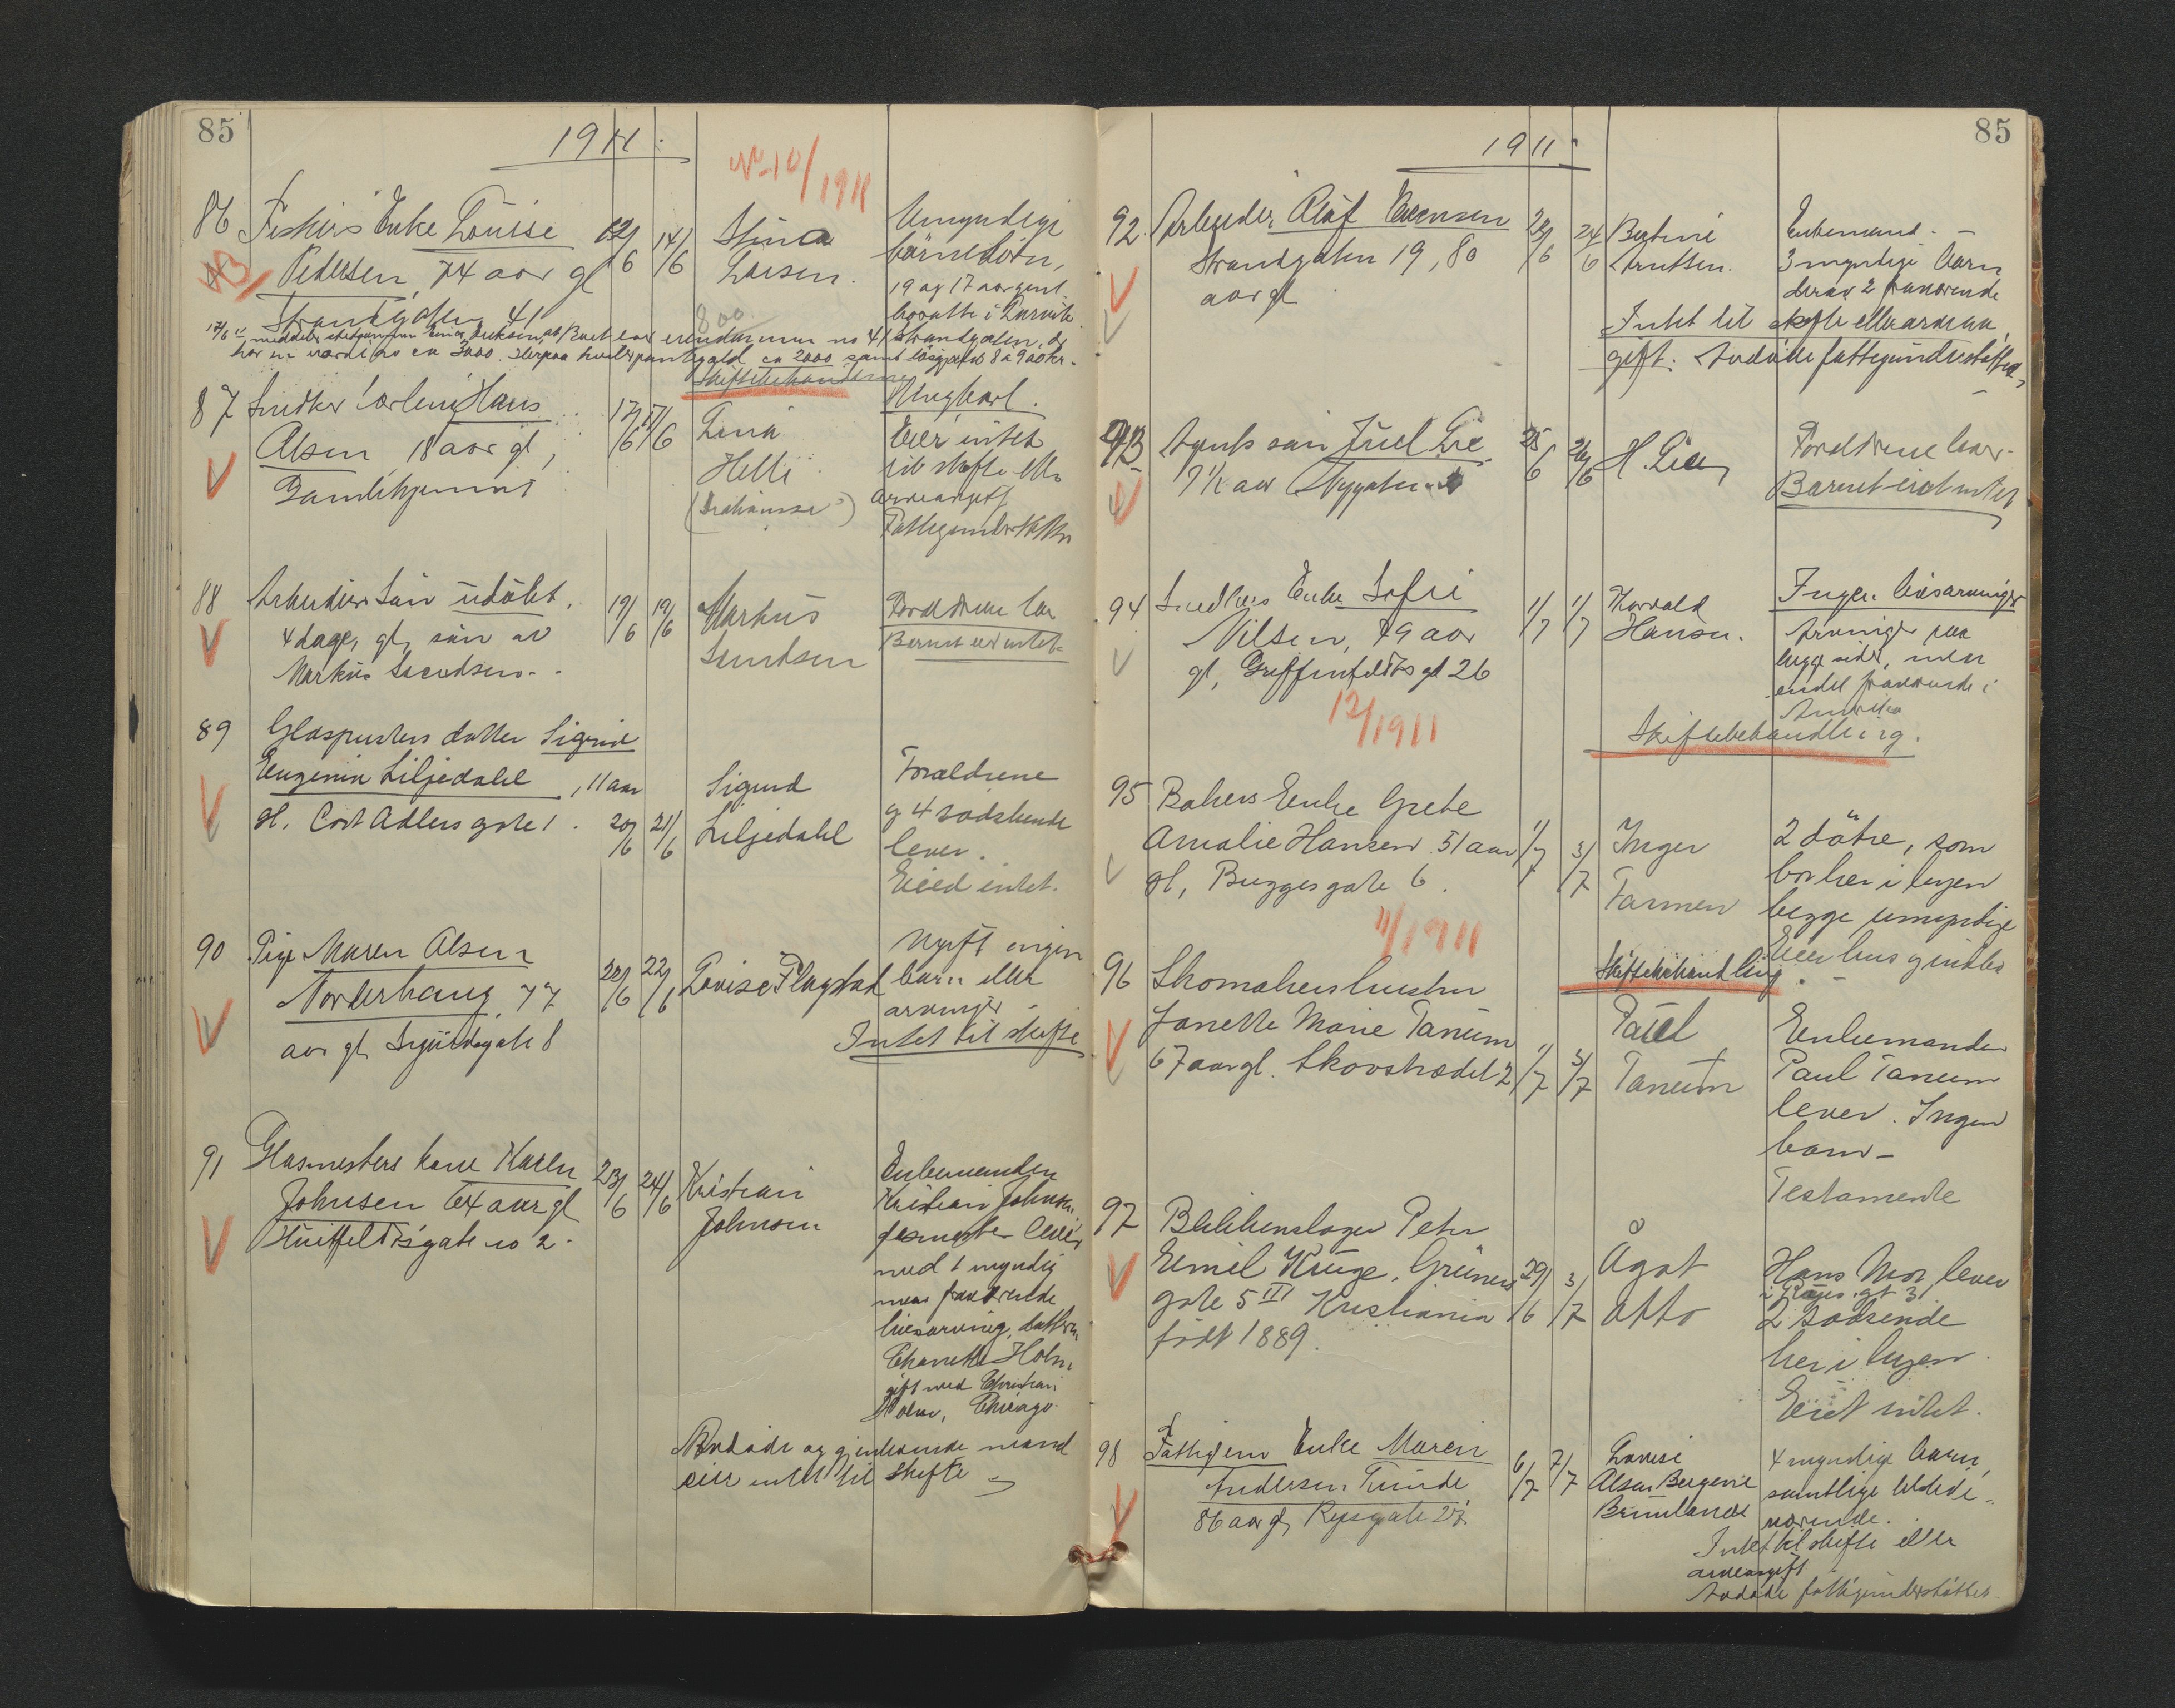 85
1911.
No 10/1911
86 Fiskers Enke Louise
Pedersen, 74 aar gl
Strandgaten 41
12/6 14/6
Stina
Larsen.
Umyndige
börnebörn,
19 og 17 aar gml
bosatte i Larvik
800
har en værdi av ca 3000. Herpaa hviler pantegjæld ca 2000 samt lösøre for 8 a 900 kr.
Skiftebehandling
87 Snedker lærling Hans
Olsen, 18 aar gl,
Gamlehjemmet
17/6 17/6
Lina
Helli
Ungkarl.
Eier intet
til skifte eller
arveavgift
Fattigunderstøttet
88 Arbeiders sön udöbt.
4 dage gl, sön av
Markus Svendsen.
19/6 19/6
Markus
Svendsen
Forældrene lever
Barnet eied intet
89 Glaspusters datter Sigrid
Eugenia Liljedahl, 11 aar
gl. Cort Adlers gate 1.
20/6 21/6
Sigurd
Liljedahl
Forældrene
og 4 sødskende
lever.
Eied intet.
90 Pige Maren Olsen
Norderhaug, 77
aar gl, Sigurdsgate 8
22/6 22/6
Lovise Flagstad
Ugift ingen
barn eller
arvinger
Intet til skifte
91 Glasmesters kone Karen
Johnsen 64 aar gl
Huitfeldtsgate no 2.
23/6 24/6
Kristian
Johnsen
Enkemanden
Kristian Johnsen,
glasmester lever
med 1 myndig
men fraværende
livsarving, datteren
Charlotte Holm
gift med Christian
Holm, Chicago.
Avdöde og gjenlevende mand
eier intet til skifte
85
1911.
92. Arbeider Olaf Evensen
Strandgaten 19, 80
aar gl
23/6 24/6
Bertine
Knutsen.
Enkemand.
3 myndige barn
derav 2 fraværende
Intet til skifte eller arveav
gift. Avdöde fattigunderstøttet
93 Agents sön Juel Lie
7 1/2 aar Nygaten
25/6 26/6
H. Lie
Forældrene lever.
Barnet eiet intet
94 Snedkers Enke Sofie
Nilsen, 79 aar
gl, Griffenfeldts gt 26
1/7 1/7
Thorvald
Hansen.
Ingen livsarvinger
Arvinger paa
begge sider, men
endel fraværende i
Amerika
12/1911
Skiftebehandling.
95 Bakers Enke Grete
Amalie Hansen 51 aar
gl, Buggesgate 6.
1/7 3/7
Inger
Farmen
2 døtre, som
bor her i byen
begge umyndige
Eier hus og indbo
11/1911
Skiftebehandling.
96 Skomakers hustru
Janette Marie Tanum
67 aar gl. Skovstrædet 2
1/7 3/7
Paul
Tanum
Enkemanden
Paul Tanum
lever. Ingen
barn
Testamente
97 Blikkenslager Peter
Emil Kruge, Grüners
gate 5 III Kristiania
født 1889.
29/6 3/7
Ågot
Otto
Hans Mor lever
2 sødskende
her i byen.
Eiet intet.
98 Fattiglem Enke Maren
Andersen Trinde
86 aar gl, Repsgate 27
6/7 7/7
Lovise
Olsen Bergene
Brunlanes
4 myndige barn,
samtlige tilstede
værende.
Intet til skifte eller
arveavgift
Avdöde fattigunderstøttet